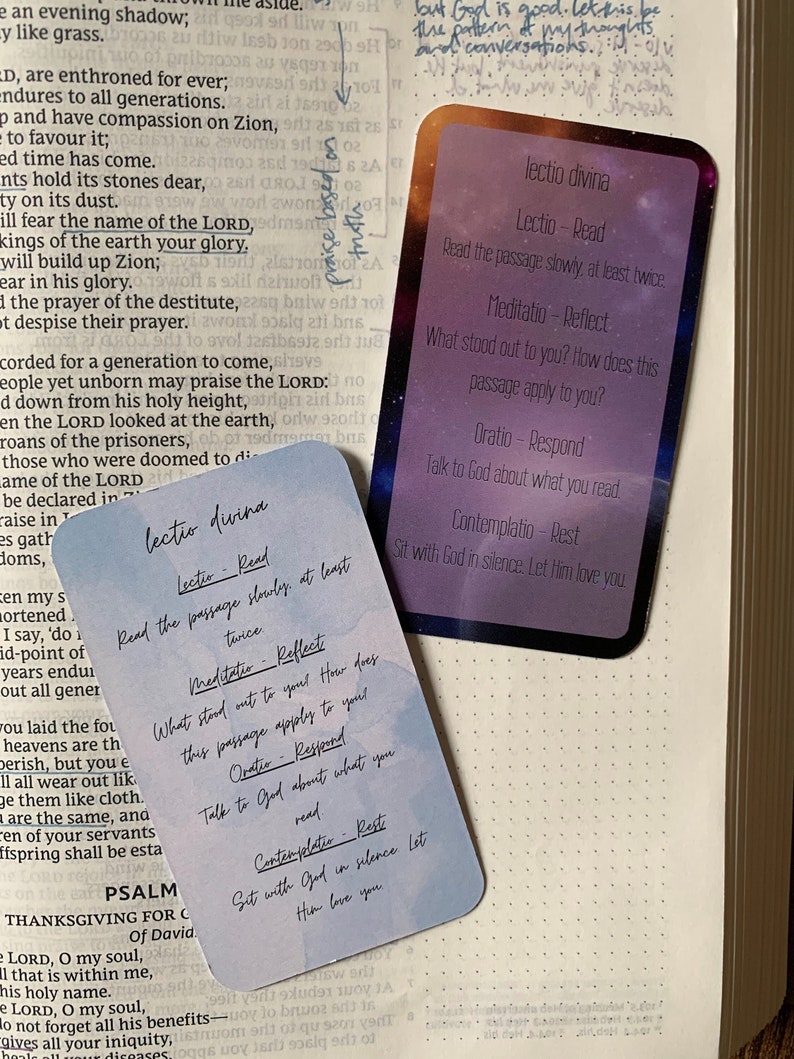 thrown me aside.
e an evening shadow;
y like grass.
RD, are enthroned for ever;
endures to all generations.
p and have compassion on Zion,
e to favour it;
ed time has come.
nts hold its stones dear,
ty on its dust.
ill fear the name of the LORD,
kings of the earth your glory.
will build up Zion;
ear in his glory.
d the prayer of the destitute,
ot despise their prayer.
corded for a generation to come,
eople yet unborn may praise the LORD:
d down from his holy height,
en the LORD looked at the earth,
roans of the prisoners,
those who were doomed to di
name of the LORD
be declared in Zi
raise in
es gath
doms,
ken my s
hortened
I say, ‘do
id-point of
years endu
out all gener
you laid the fou
heavens are th
perish, but you e
ll all wear out lik
ge them like cloth
u are the same, and
ren of your servants
ffspring shall be esta
PSALM
THANKSGIVING FOR G
Of David.
e LORD, O my soul,
ll that is within me,
his holy name.
e LORD, O my soul,
do not forget all his benefits—
gives all your iniquity,
heals all your diseases,
but God is good. let this be
the pattern of my thoughts
and conversations.
praise based on
truth
lectio divina
Lectio – Read
Read the passage slowly, at least twice.
Meditatio – Reflect
What stood out to you? How does this
passage apply to you?
Oratio – Respond
Talk to God about what you read.
Contemplatio – Rest
Sit with God in silence. Let Him love you.
lectio divina
Lectio - Read
Read the passage slowly, at least
twice.
Meditatio - Reflect
What stood out to you? How does
this passage apply to you?
Oratio - Respond
Talk to God about what you
read.
Contemplatio - Rest
Sit with God in silence. Let
Him love you.